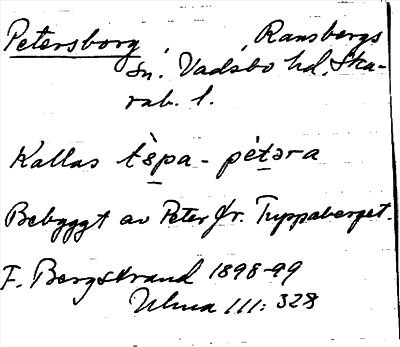 Petersborg, Ransbergs
sn. Vadsbo hd, Ska-
rab. l.
Kallas tè̱pa-pèṯəra
Bebyggt av Peter fr. Tuppaberget.
F. Bergstrand 1898-99
Ulma 111: 328